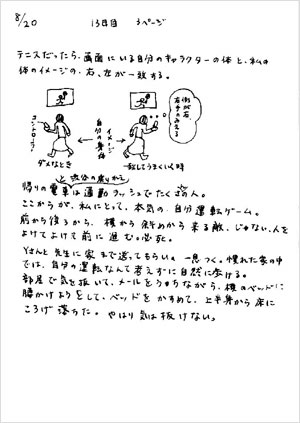 8/20　13日目　3ページ
テニスだったら、画面にいる自分のキャラクターの体と、私の
体のイメージの、右、左が一致する。
自分の身体
イメージ
コントローラー
ダメなとき
一致してうまくいく時
帰りの電車は通勤ラッシュでたくさん。
ここからが、私にとって、本気の自分運転ゲーム。
前から後ろから、横から斜めから来る敵、じゃない、人を
よけてよけて前に進む。必死。
Yさんと先生に家まで送ってもらい。一息つく。慣れた家の中
では、自分の運転なんて考えずに自然に歩ける。
部屋で気を抜いて、メールをうちながら、横のベッドに
腰かけようをして、ベッドをかすめて、上半身から床に
ころげ落ちた。やはり気は抜けない。